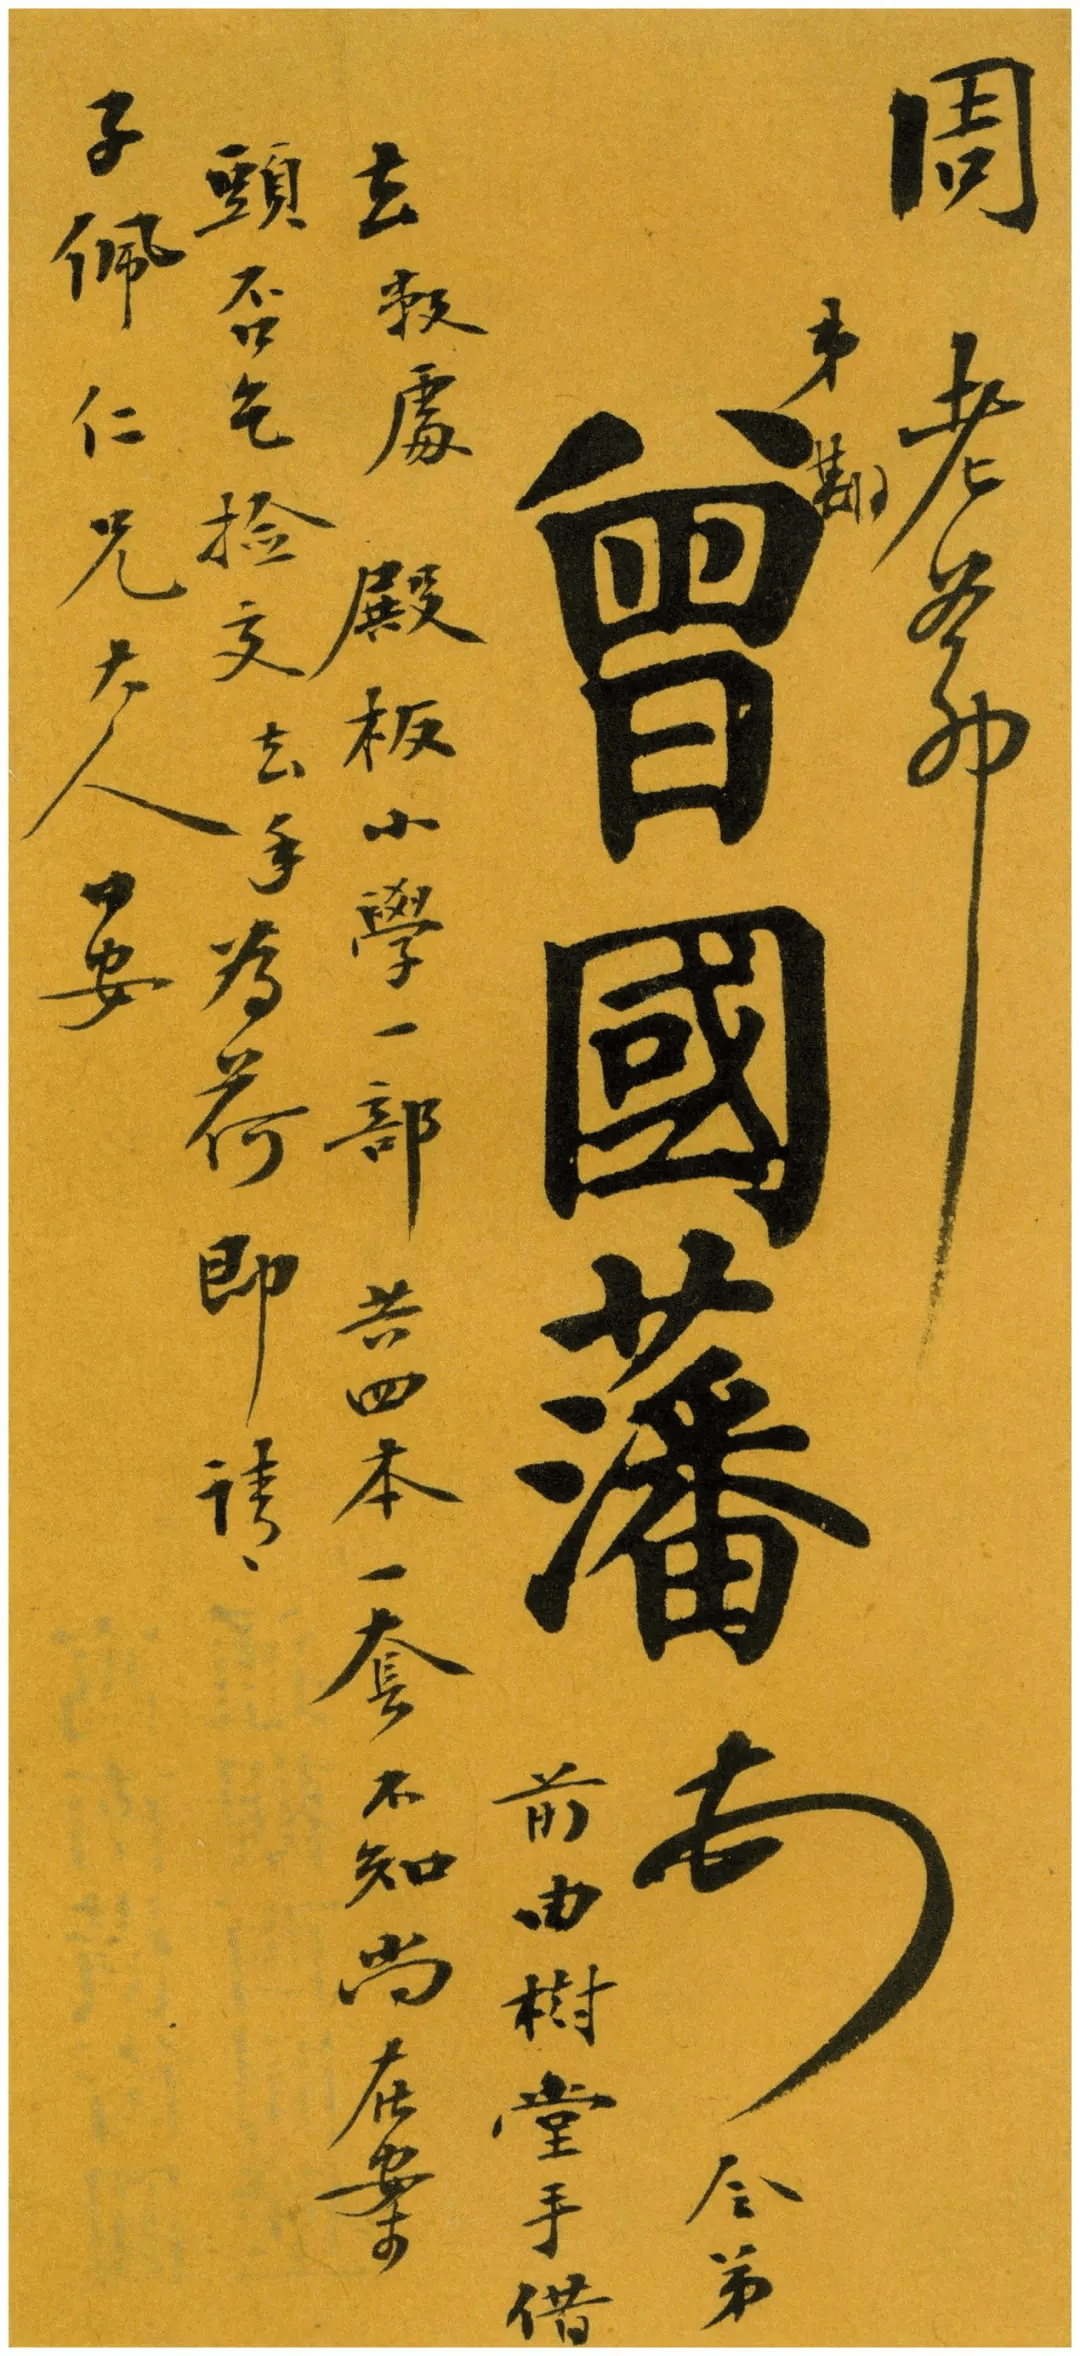 周老爺
弟期
曾國藩
令弟
前由樹堂手借
去敝處殿板小學一部共四本一套不知尚在案
頭否乞撿交去手為荷即請
子佩仁兄大人日安